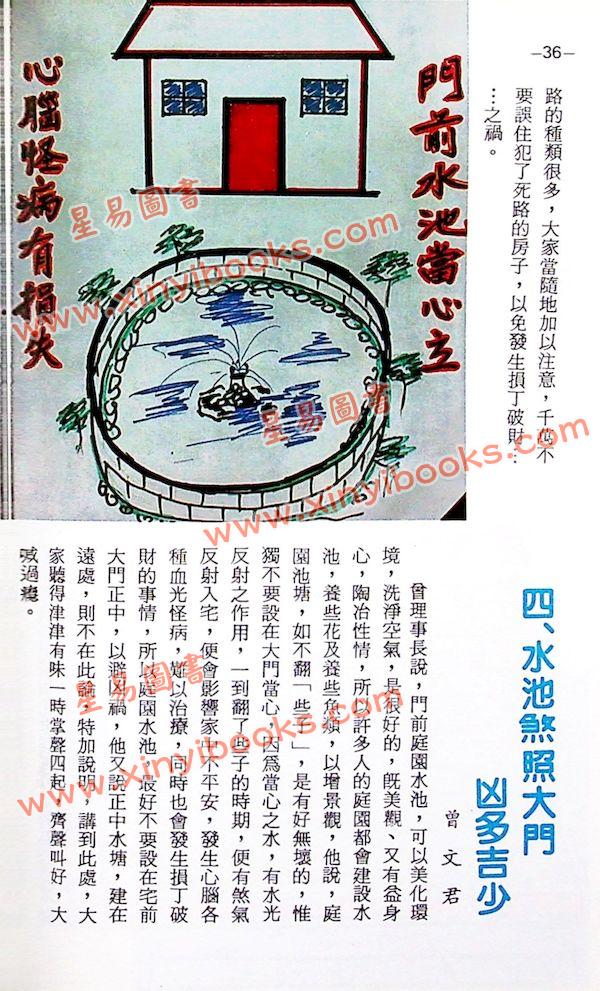 —36—
路的種類很多，大家當隨地加以注意，千萬不
要誤住犯了死路的房子，以免發生損丁破財…
…之禍。
門前水池當心立
心腦怪病有損失
四、水池煞照大門
凶多吉少
曾文君
曾理事長說，門前庭園水池，可以美化環
境，洗淨空氣，是很好的，既美觀、又有益身
心，陶冶性情，所以許多人的庭園都會建設水
池，養些花及養些魚類，以增景觀，他說，庭
園池塘，如不翻「些子」，是有好無壞的，惟
獨不要設在大門當心，因爲當心之水，有水光
反射之作用，一到翻了些子的時期，便有煞氣
反射入宅，便會影響家中不平安，發生心腦各
種血光怪病，難以治療，同時也會發生損丁破
財的事情，所以庭園水池，最好不要設在宅前
大門正中，以避凶禍，他又說正中水塘，建在
遠處，則不在此論，特加說明，講到此處，大
家聽得津津有味一時掌聲四起，齊聲叫好，大
喊過癮。
星易圖書
www.xinyibooks.com
星易圖書
www.xinyibooks.com
星易圖書
www.xinyibooks.com